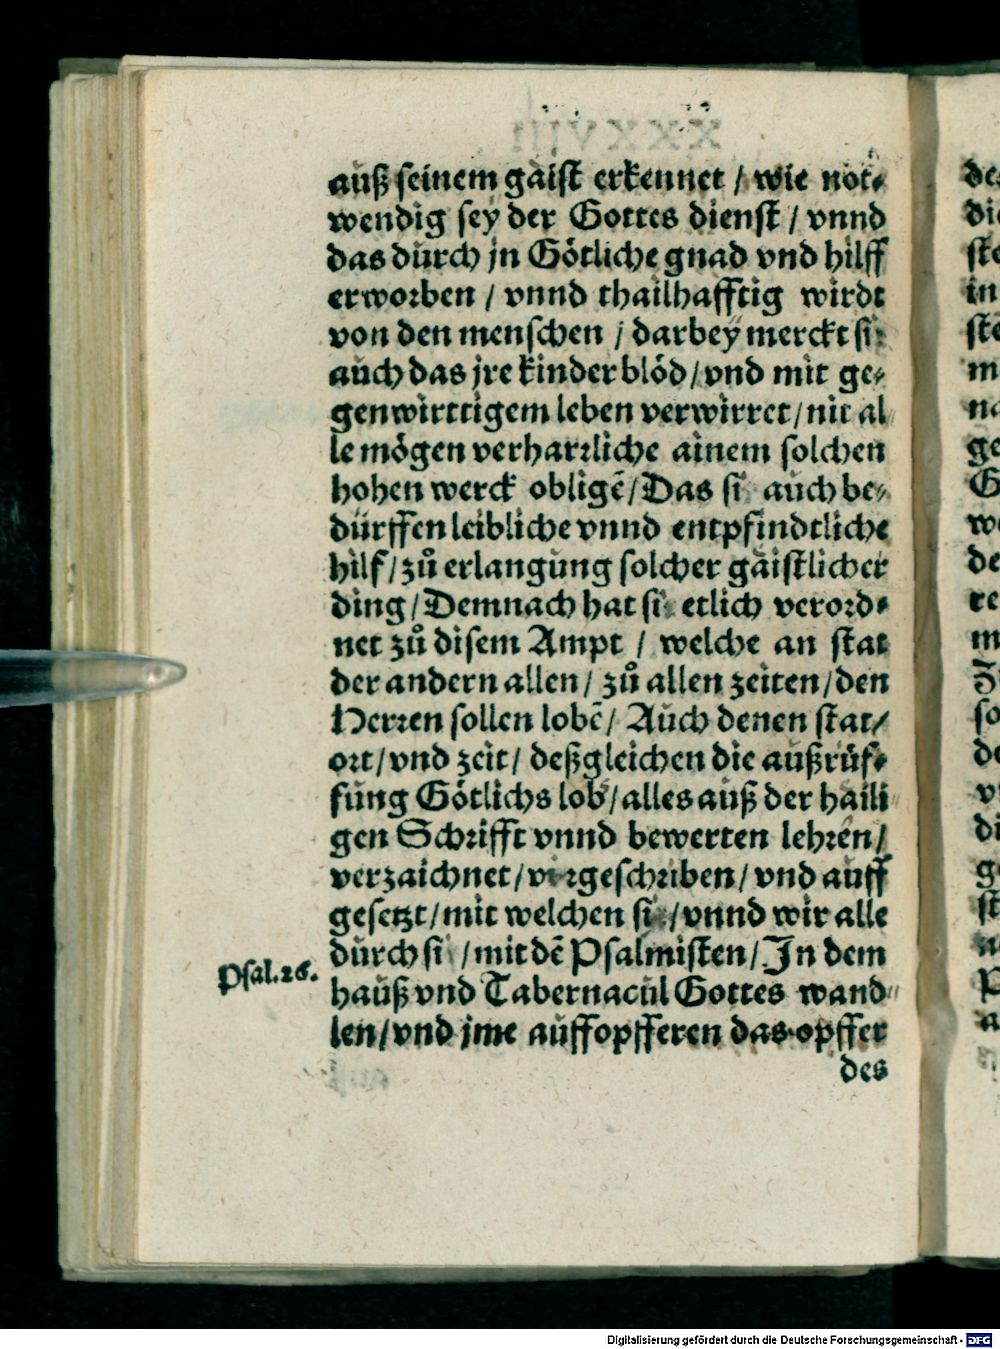 auß seinem gaist erkennet / wie not⸗
wendig sey der Gottes dienst / vnnd
das durch jn Götliche gnad vnd hilff
erworben / vnnd thailhafftig wirdt
von den menschen / darbey merckt si
auch das jre kinder blöd / vnd mit ge⸗
genwirttigem leben verwirret / nit al
le mögen verharrliche ainem solchen
hohen werck obligē / Das si auch be⸗
dürffen leibliche vnnd entpfindtliche
hilf / zů erlangung solcher gaistlicher
ding / Demnach hat si etlich verord⸗
net zů disem Ampt / welche an stat
der andern allen / zů allen zeiten / den
Herren sollen lobē / Auch denen stat /
ort / vnd zeit / deßgleichen die außrüf⸗
fung Götlichs lob / alles auß der haili
gen Schrifft vnnd bewerten lehren /
verzaichnet / vorgeschriben / vnd auff
gesetzt / mit welchen si / vnnd wir alle
durch si / mit dē Psalmisten / In dem
Psal.26.
hauß vnd Tabernacul Gottes wand⸗
len / vnd jme auffopfferen das opffer
des
Digitalisierung gefördert durch die Deutsche Forschungsgemeinschaft - DFG